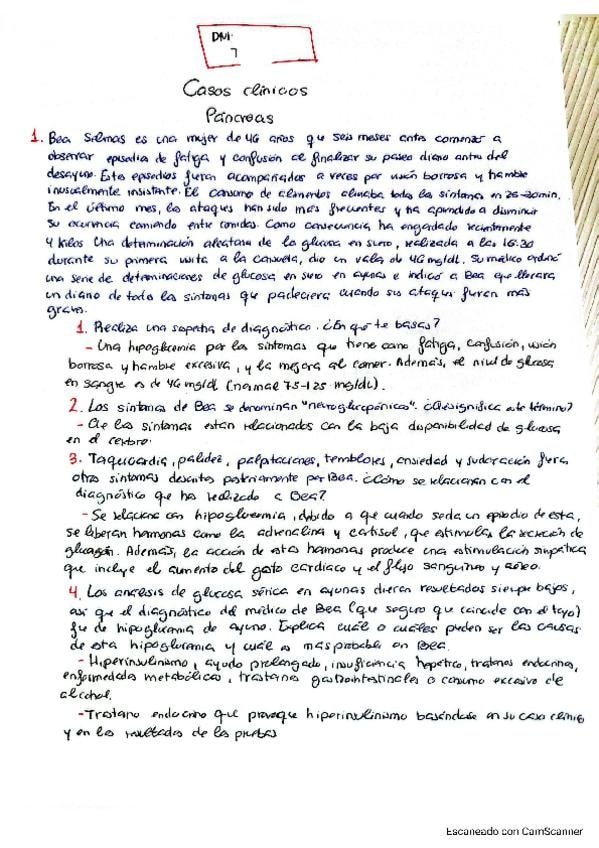 DNI:
7
Casos clínicos
Páncreas
1. Bea Salinas es una mujer de 46 años que seis meses antes comenzó a
observar episodios de fatiga y confusión al finalizar su paseo diario antes del
desayuno. Estos episodios fueron acompañados a veces por visión borrosa y hambre
inusualmente insistente. El consumo de alimentos aliviaba todos los síntomas en 26-30min.
En el último mes, los ataques han sido más frecuentes y ha aprendido a disminuir
su ocurrencia comiendo entre comidas. Como consecuencia ha engordado recientemente
4 kilos. Una determinación aleatoria de la glucosa en suero, realizada a las 16:30
durante su primera visita a la consulta, dio un valor de 46 mg/dl. Su médico ordenó
una serie de determinaciones de glucosa en suero en ayunas e indicó a Bea que llevara
un diario de todos los síntomas que padeciera cuando sus ataques fueran más
graves.
1. Realiza una sospecha de diagnóstico. ¿En qué te basas?
- Una hipoglicemia por los síntomas que tiene como fatiga, confusión, visión
borrosa y hambre excesiva, y la mejora al comer. Además, el nivel de glucosa
en sangre es de 46 mg/dl (normal 75-125 mg/dl).
2. Los síntomas de Bea se denominan "neuroglucopénicos". ¿Qué significa este término?
- Que los síntomas están relacionados con la baja disponibilidad de glucosa
en el cerebro.
3. Taquicardia, palidez, palpitaciones, temblores, ansiedad y sudoración fueron
otros síntomas descritos posteriormente por Bea. ¿Cómo se relacionan con el
diagnóstico que has realizado a Bea?
- Se relaciona con hipoglucemia, debido a que cuando se da un episodio de esta,
se liberan hormonas como la adrenalina y cortisol, que estimulas la secreción de
glucagón. Además, la acción de estas hormonas produce una estimulación simpática
que incluye el aumento del gasto cardíaco y el flujo sanguíneo y aéreo.
4. Los análisis de glucosa sérica en ayunas dieron resultados siempre bajos,
así que el diagnóstico del médico de Bea (que seguro que coincide con el tuyo)
fue de hipoglucemia de ayuno. Explica cuál o cuáles pueden ser las causas
de esta hipoglucemia y cuál es más probable en Bea.
- Hiperinsulinismo, ayuno prolongado, insuficiencia hepática, trastornos endocrinos,
enfermedades metabólicas, trastornos gastrointestinales o consumo excesivo de
alcohol.
- Trastorno endocrino que provoque hiperinsulinismo basándose en su caso clínico
y en los resultados de las pruebas
Escaneado con CamScanner